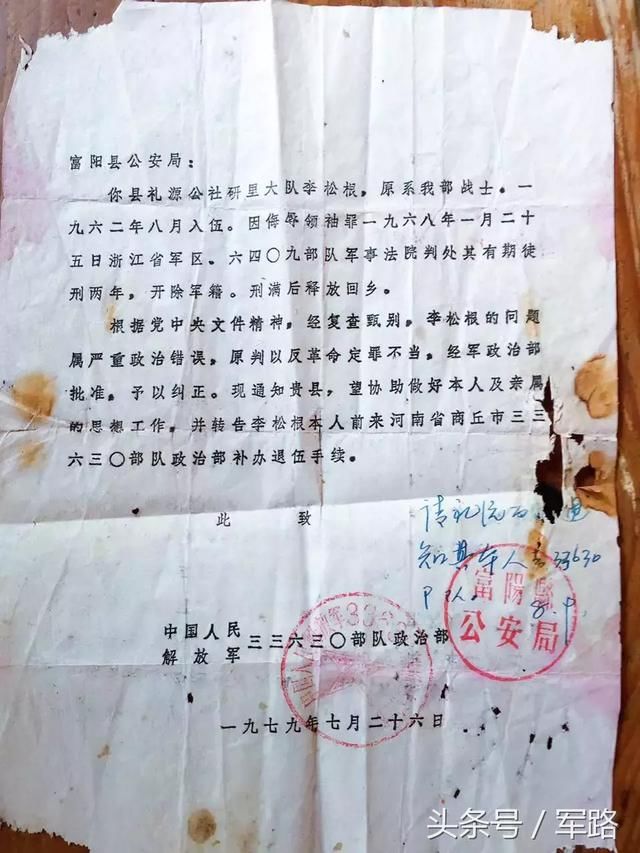 富阳县公安局：
你县礼源公社研里大队李松根，原系我部战士。一
九六二年八月入伍。因侮辱领袖罪一九六八年一月二十
五日浙江省军区。六四〇九部队军事法院判处其有期徒
刑两年，开除军籍。刑满后释放回乡。
根据党中央文件精神，经复查甄别，李松根的问题
属严重政治错误，原判以反革命定罪不当，经军政治部
批准，予以纠正。现通知贵县，望协助做好本人及亲属
的思想工作，并转告李松根本人前来河南省商丘市三三
六三〇部队政治部补办退伍手续。
此致
请礼源
知其本人去33630
部队。
8.9.
富陽縣
公安局
中国人民
解放军
三三六三〇部队政治部
一九七九年七月二十六日
头条号／军路